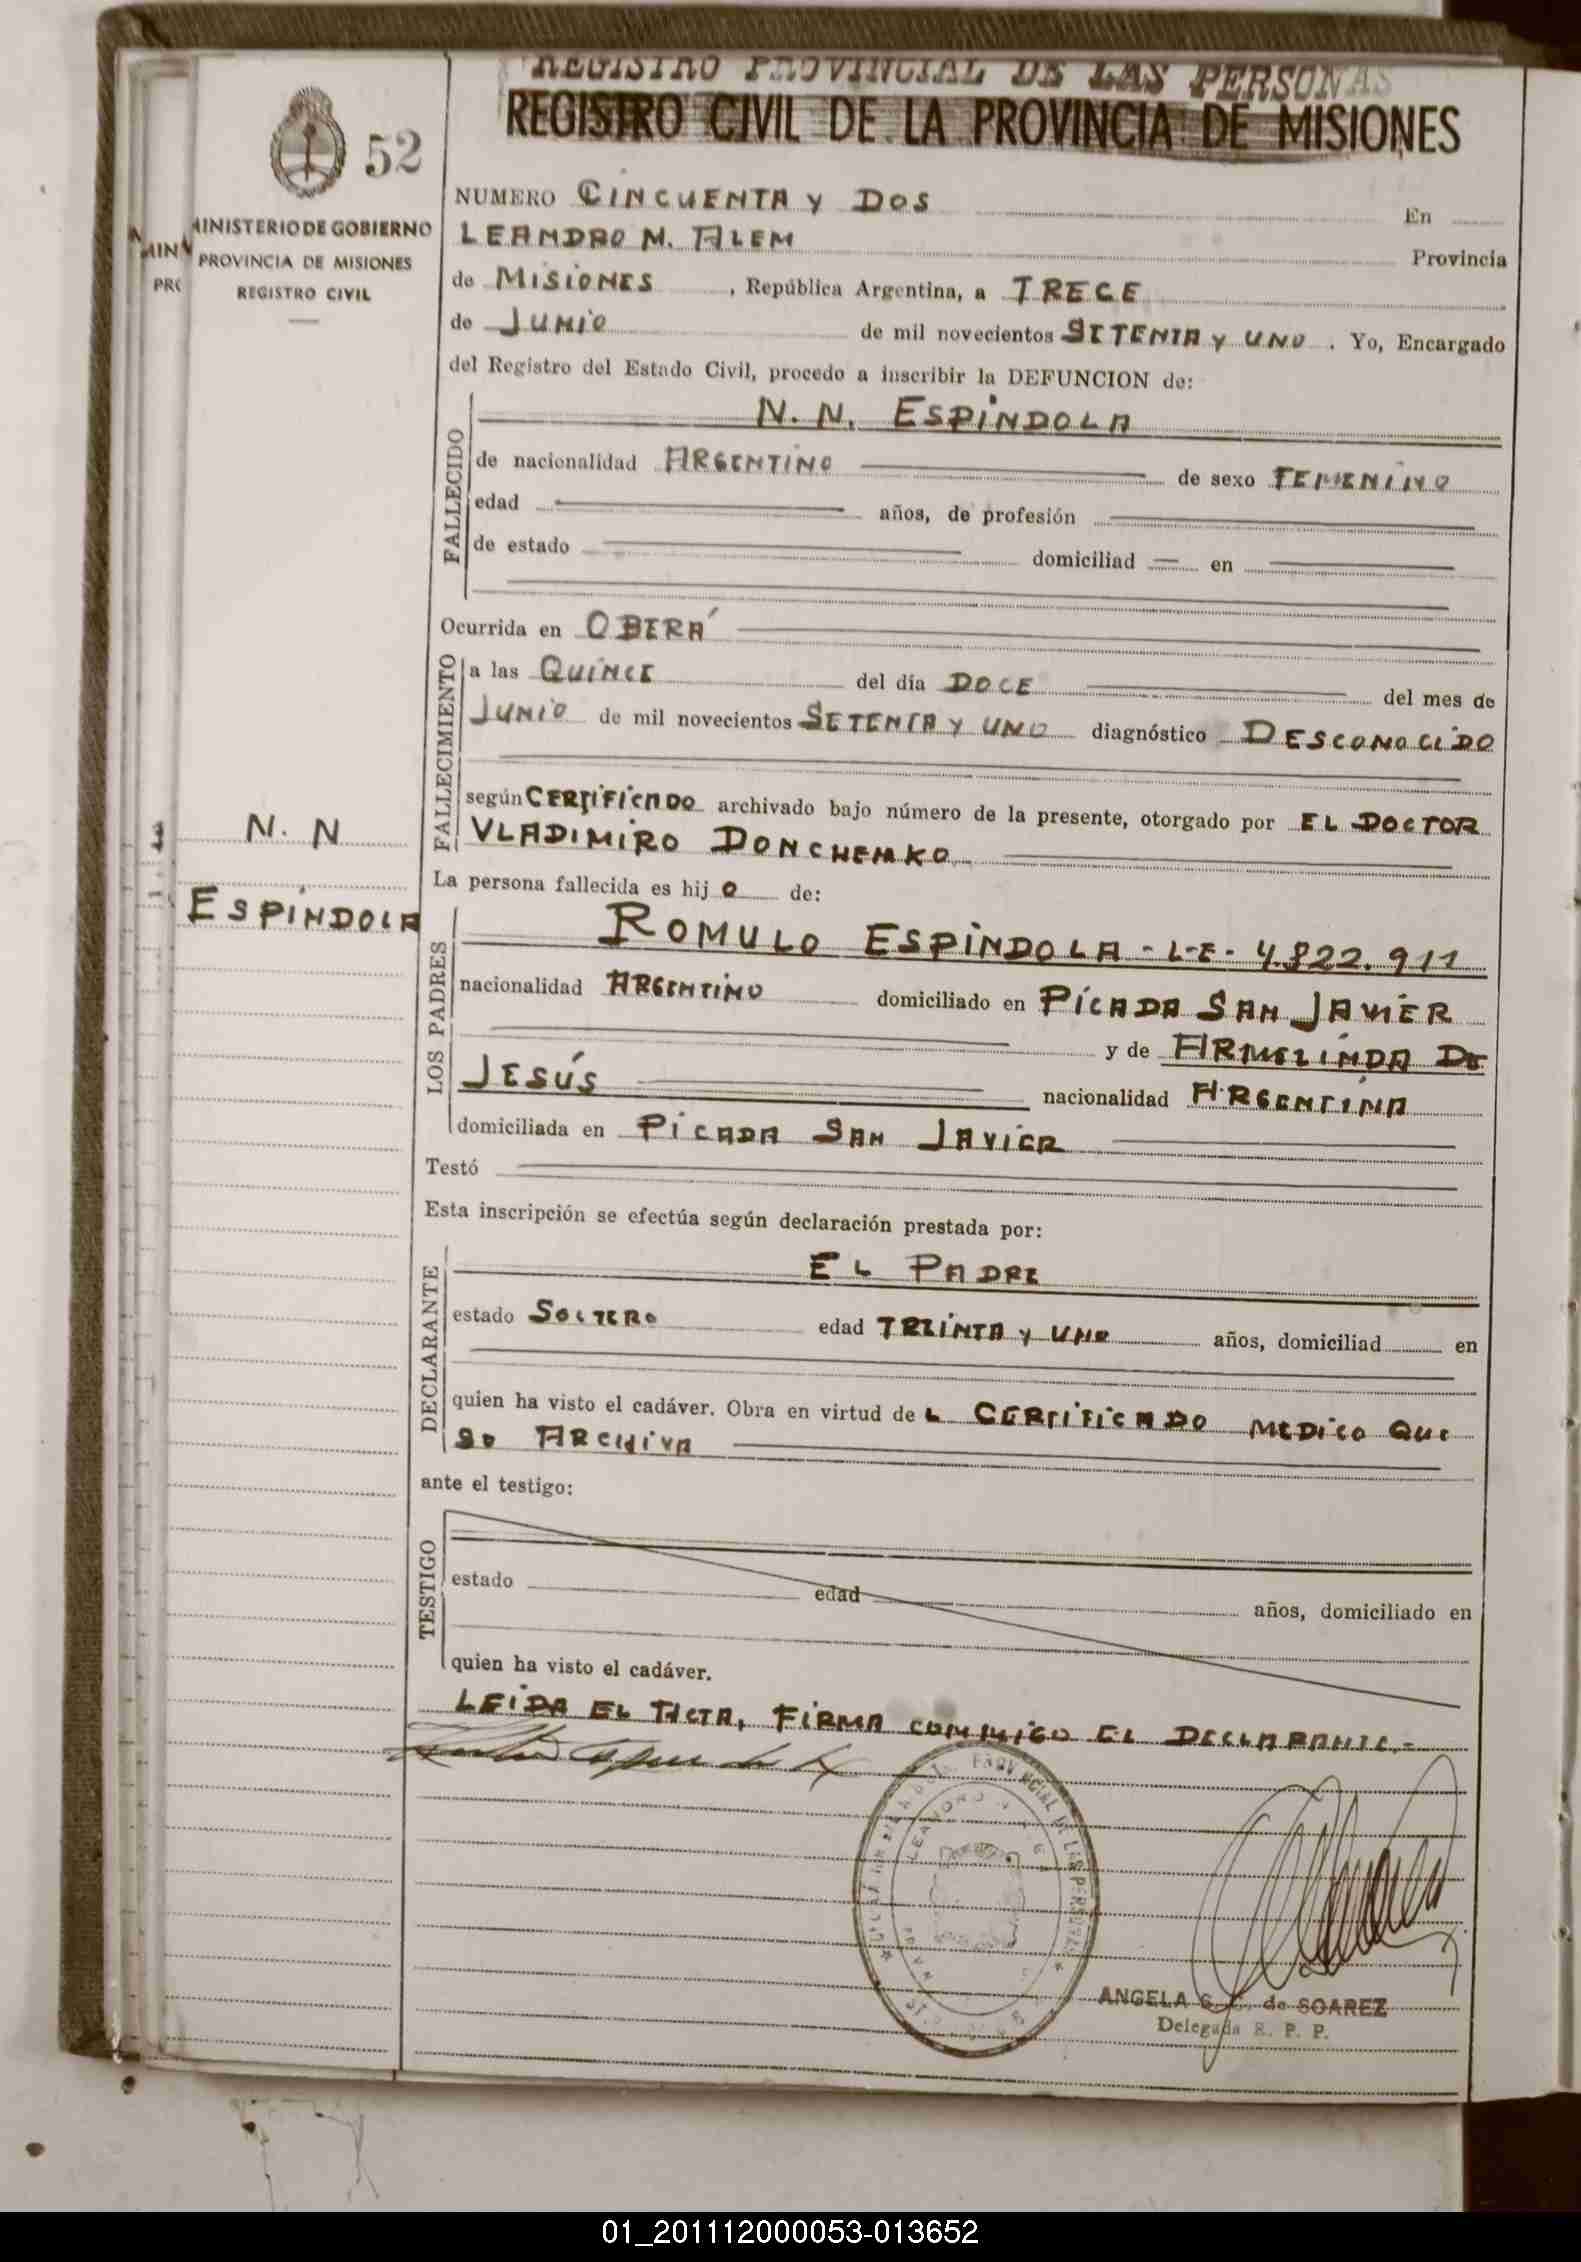 REGISTRO PROVINCIAL DE LAS PERSONAS
REGISTRO CIVIL DE LA PROVINCIA DE MISIONES
52
MINISTERIO DE GOBIERNO
PROVINCIA DE MISIONES
REGISTRO CIVIL
NUMERO CINCUENTA Y DOS En
LEANDRO N. ALEM Provincia
de MISIONES , República Argentina, a TRECE
de JUNIO de mil novecientos SETENTA Y UNO . Yo, Encargado
del Registro del Estado Civil, procedo a inscribir la DEFUNCION de:
FALLECIDO
N. N. ESPINDOLA
de nacionalidad ARGENTINO de sexo FEMENINO
edad años, de profesión
de estado domiciliad en
Ocurrida en OBERÁ
FALLECIMIENTO
a las QUINCE del día DOCE del mes de
JUNIO de mil novecientos SETENTA Y UNO diagnóstico DESCONOCIDO
según CERTIFICADO archivado bajo número de la presente, otorgado por EL DOCTOR
VLADIMIRO DONCHENKO
N. N
ESPINDOLA
La persona fallecida es hij O de:
LOS PADRES
ROMULO ESPINDOLA - L-E- 4.822.911
nacionalidad ARGENTINO domiciliado en PICADA SAN JAVIER
y de ARMELINDA DE
JESÚS nacionalidad ARGENTINA
domiciliada en PICADA SAN JAVIER
Testó
Esta inscripción se efectúa según declaración prestada por:
DECLARANTE
EL PADRE
estado SOLTERO edad TREINTA Y UNO años, domiciliad en
quien ha visto el cadáver. Obra en virtud de L CERTIFICADO MEDICO QUE
SE ARCHIVA
ante el testigo:
TESTIGO
estado edad años, domiciliado en
quien ha visto el cadáver.
LEIDA EL ACTA, FIRMA CONMIGO EL DECLARANTE.-
ANGELA de SOAREZ
Delegada R. P. P.
01_201112000053-013652